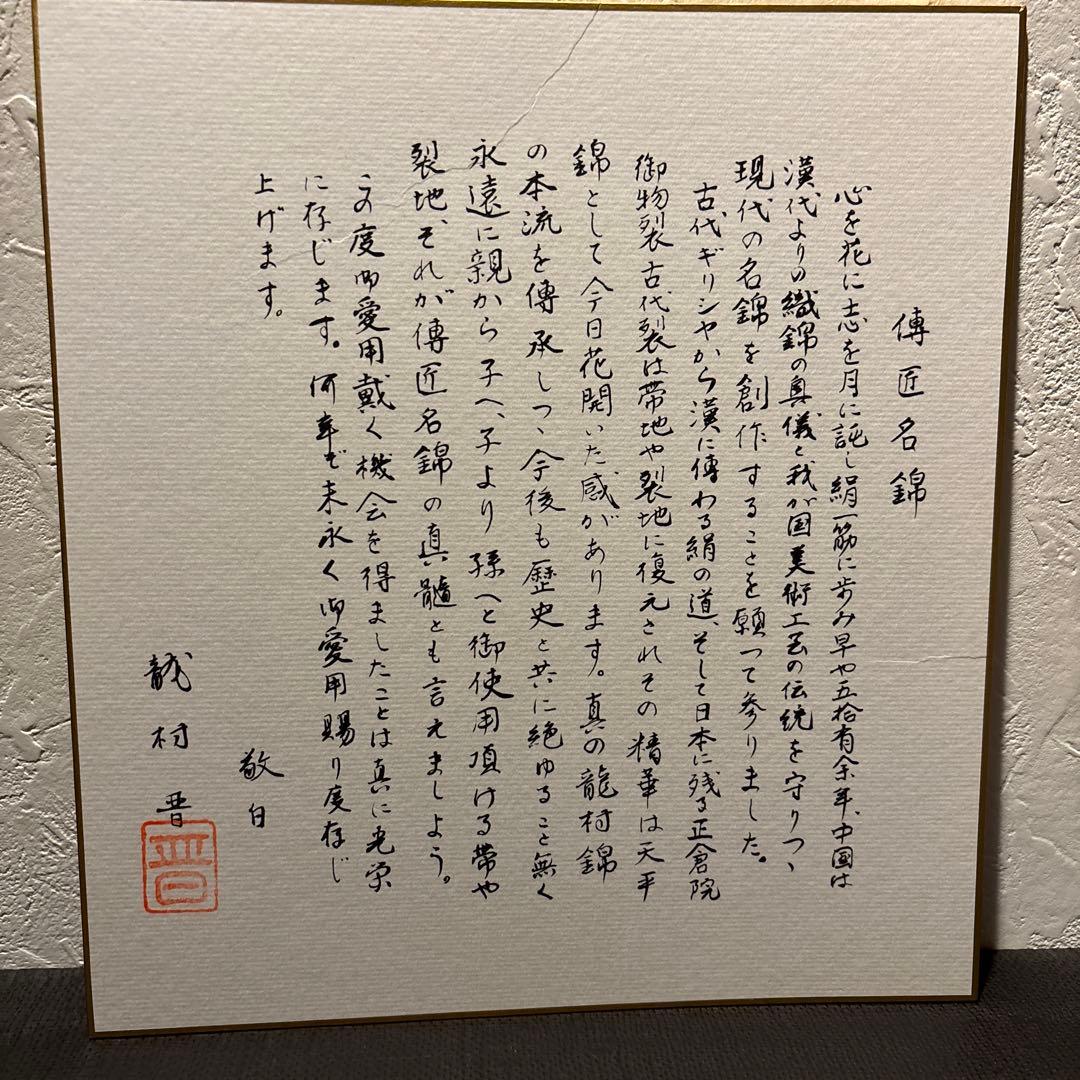 傳匠名錦
心を花に志を月に託し絹一筋に歩み早や五拾有余年、中国は
漢代よりの織錦の奥儀と我が国美術工芸の伝統を守りつゝ
現代の名錦を創作することを願って参りました。
古代ギリシヤから漢に傳わる絹の道、そして日本に残る正倉院
御物裂古代裂は帯地や裂地に復元されその精華は天平
錦として今日花開いた感があります。真の龍村錦
の本流を傳承しつゝ今後も歴史と共に絶ゆること無く
永遠に親から子へ、子より孫へと御使用頂ける帯や
裂地、それが傳匠名錦の真髄とも言えましょう。
この度御愛用戴く機会を得ましたことは真に光栄
に存じます。何卒で末永く御愛用賜り度存じ
上げます。
敬白
龍村晋
晋